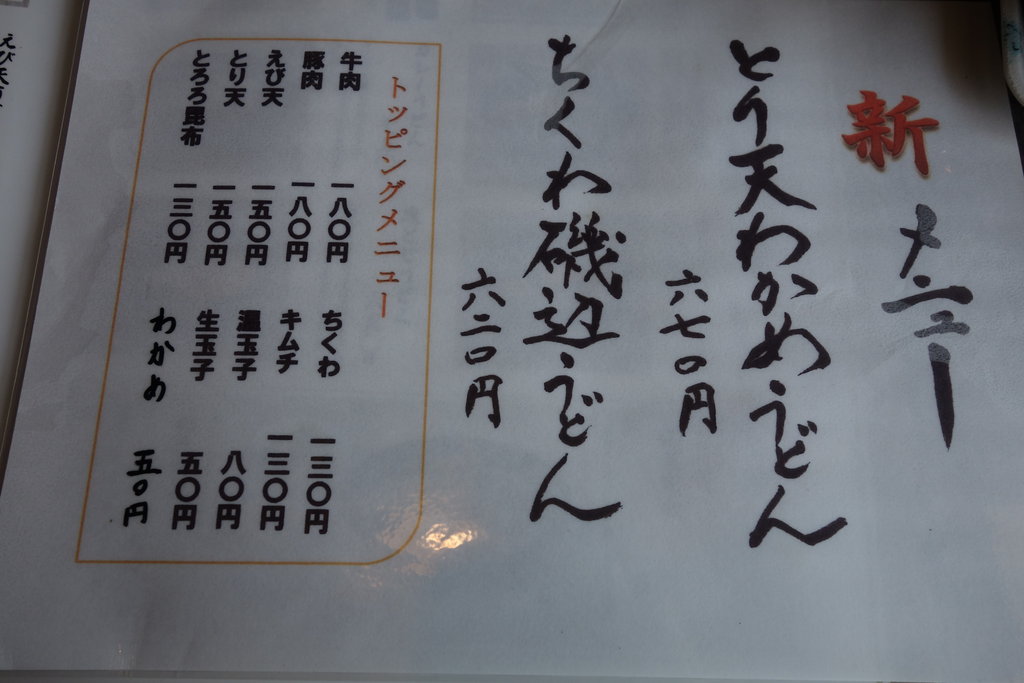 新メニュー
とり天わかめうどん
六七〇円
ちくわ磯辺うどん
六二〇円
トッピングメニュー
牛肉 一八〇円
豚肉 一八〇円
えび天 一五〇円
とり天 一五〇円
とろろ昆布 一三〇円
ちくわ 一三〇円
キムチ 一三〇円
温玉子 八〇円
生玉子 五〇円
わかめ 五〇円